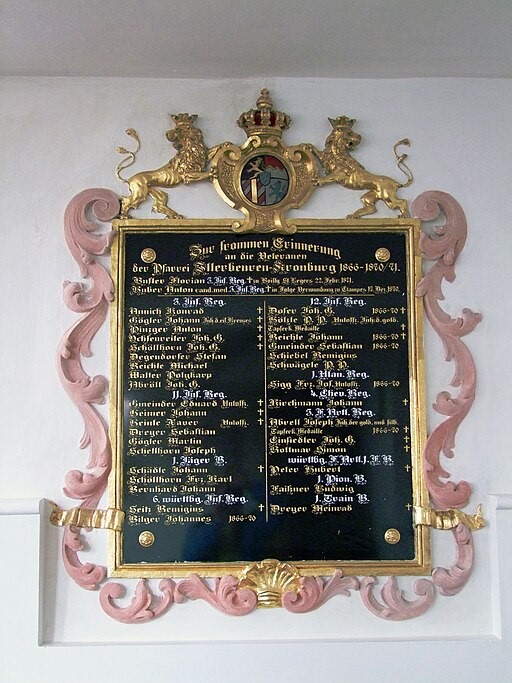 Zur frommen Erinnerung
an die Veteranen
der Pfarrei Illerbeuren-Kronburg 1866-1870/71.
Buffler Florian 3. Inf. Reg. † in Boilly St Legers 22. Febr. 1871.
Huber Anton cand. med. 3. Inf. Reg. † in Folge Verwundung in Etampes 17. Dez. 1870.
3. Inf. Reg.
Konrad
Gögler Johann †
Pinzger Anton †
Ochsenreiter Joh. G. †
Schöllhorn Joh. G. †
Degendorfer Stefan
Reichle Michael
Walter Polykarp
Abröll Joh. G.
11. Inf. Reg.
Gmeinder Eduard Untoffz. †
Heimer Johann †
Xaver Untoffz. †
Dreyer Sebastian
Gögler Martin
Johann
1. Jäger B.
Schädle Johann †
Schöllhorn Frz. Karl
Bernhard Johann
6. württbg. Inf. Reg.
Seitz Remigius †
Bilger Johannes 1866-70
12. Inf. Reg.
Doser Joh. G. 1866-70 †
Hölzle P. P. Untoffz. Inh. d. gold.
Tapferk. Medaille †
Reichle Johann 1866-70 †
Gmeinder Sebastian 1866-70
Schiebel Remigius
Schwägele P. P.
1. Ulan. Reg.
Sigg Frz. Jos. Untoffz. 1866-70
4. Chev. Reg.
Riechmann Johann †
3. F. Artl. Reg.
Abröll Joseph Inh. der gold. und silb.
Tapferk. Medaille 1866-70 †
Einsiedler Joh. G. †
Rottmar Simon †
württbg. F. Artl. I. F. B.
Peter Hubert †
1. Pion. B.
Ludwig
1. Train B.
Dreyer Meinrad †